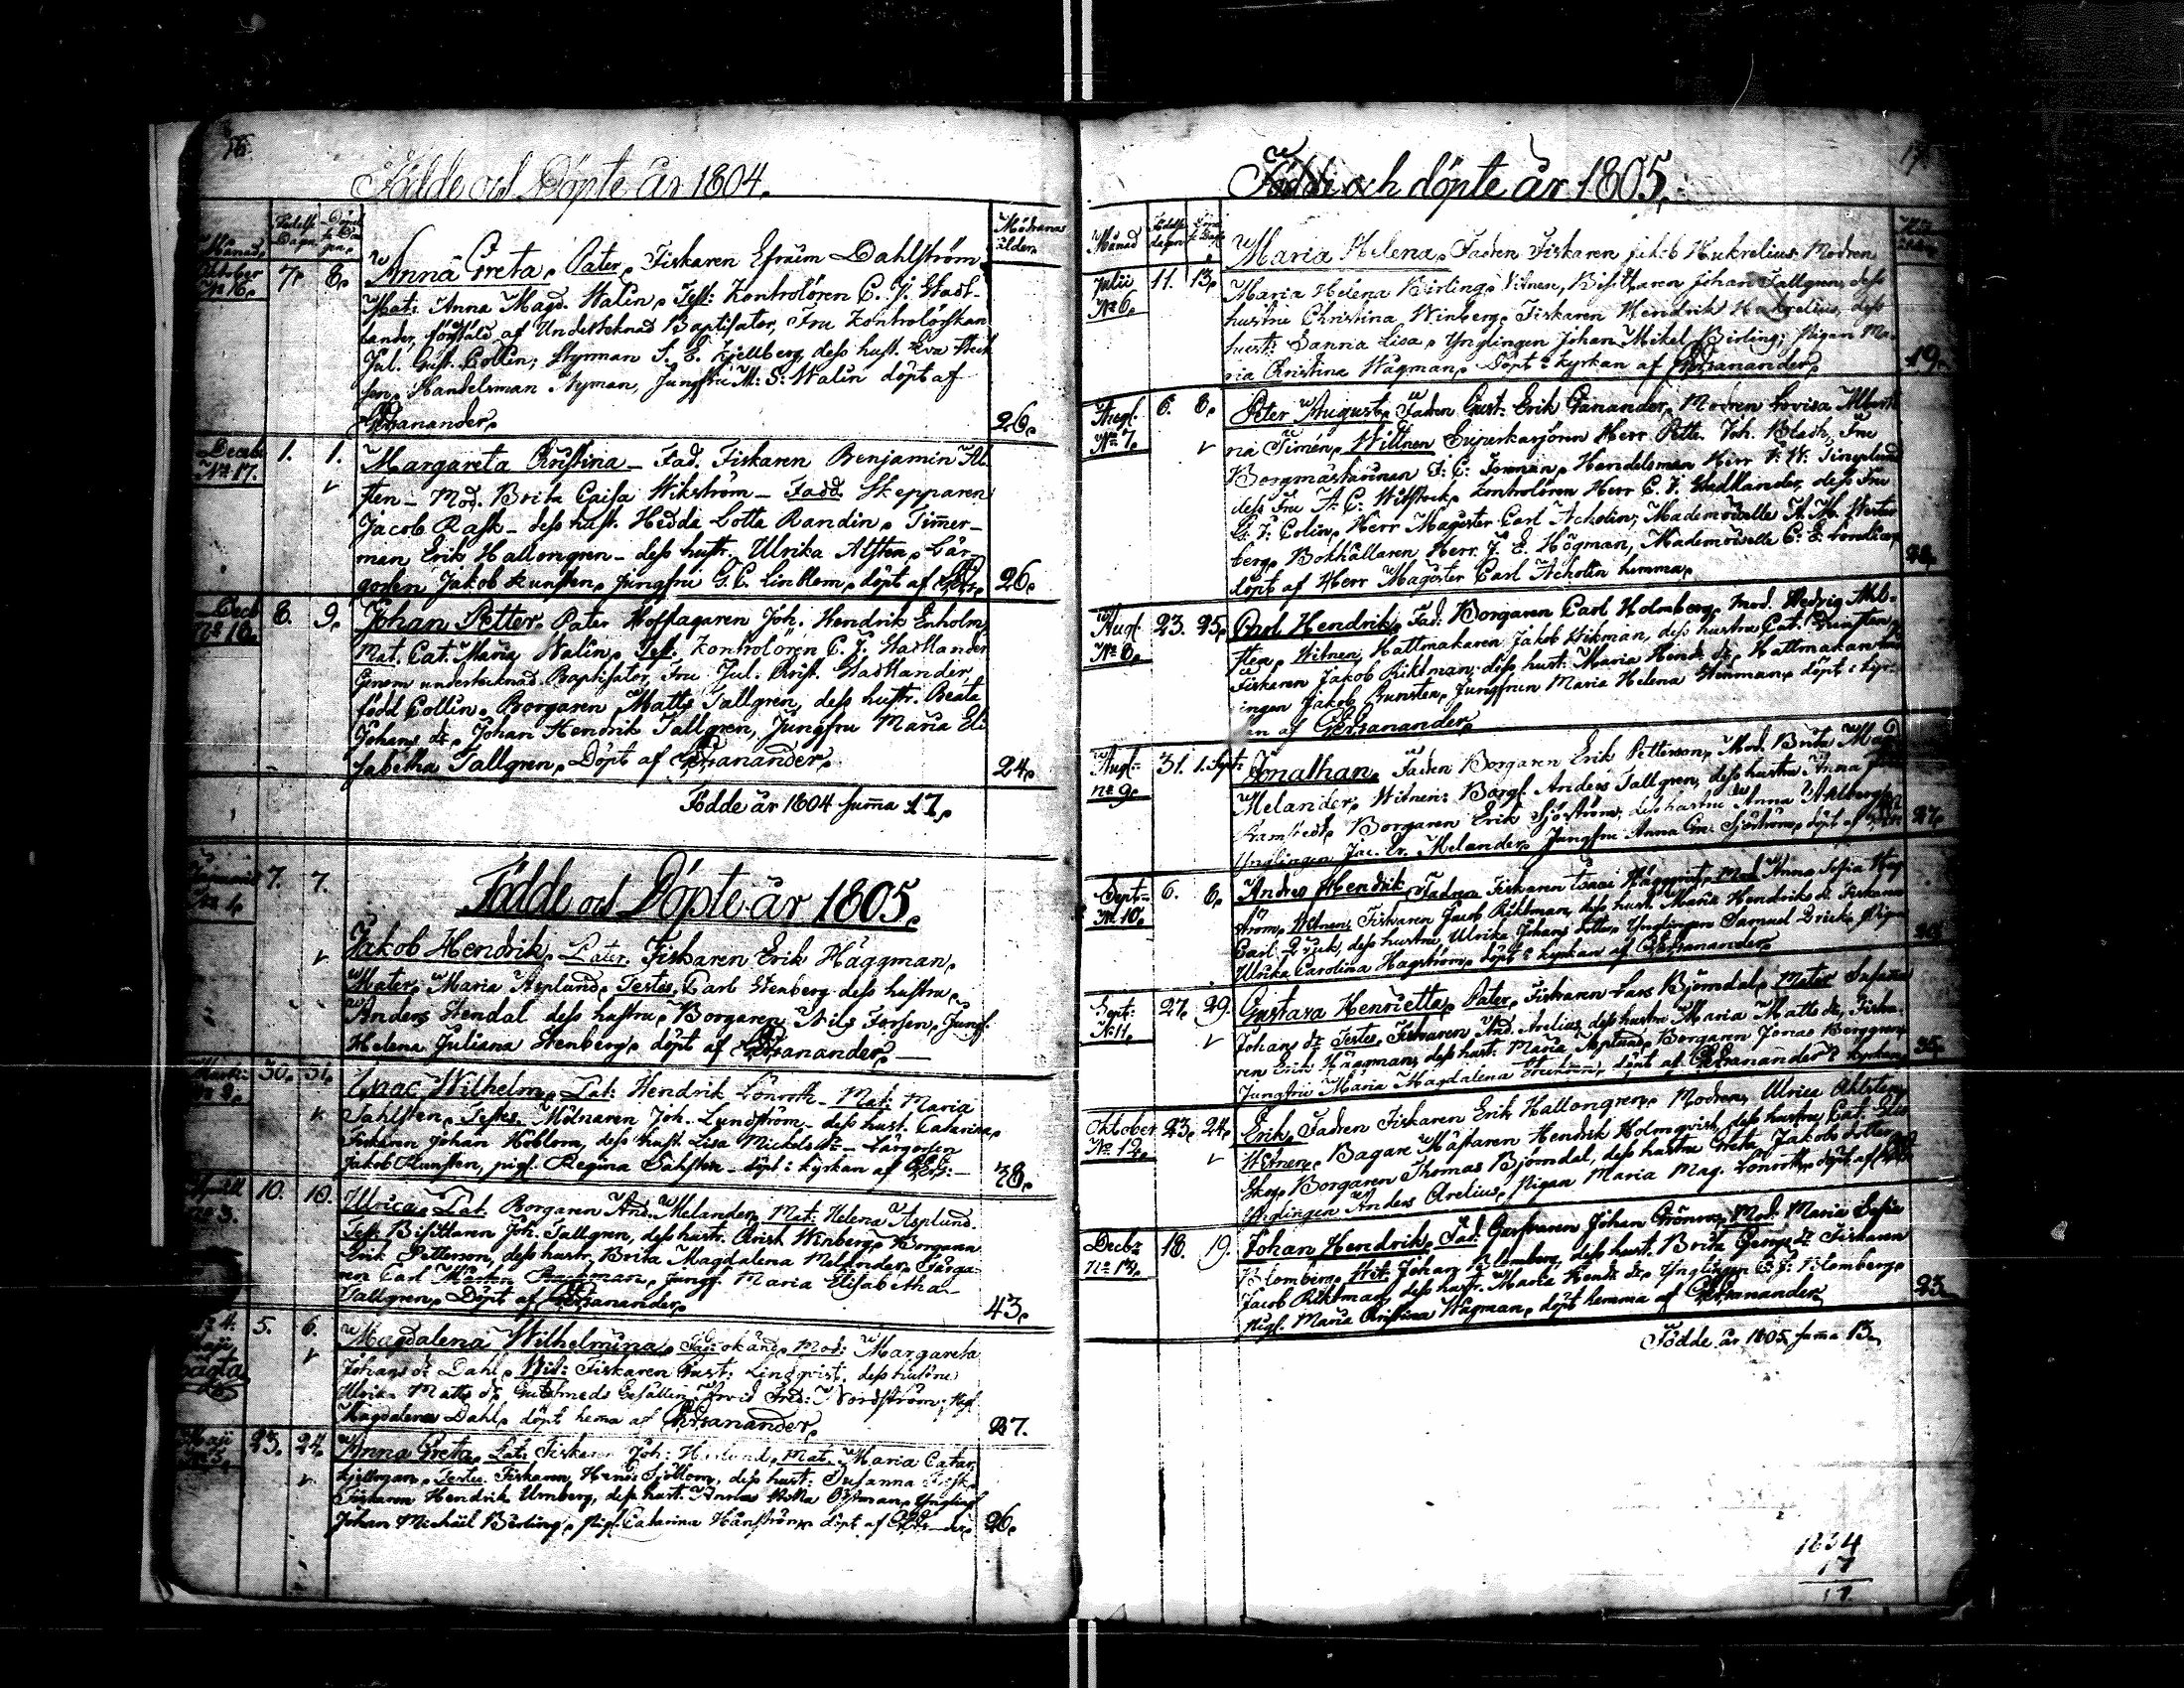 Födde och Döpte år 1804.
Månad Födelse Dagen Döpelse Dagen Modrens ålder
Oktober No 16. 7. 8. Anna Greta. Pater. Fiskaren Efraim Dahlström
Mat: Anna Magd. Walin. Test: Kontrolören C. J. Stadt-
lander, förestäld af Underteknad Baptisator, Fru Kontrolörskan
Jul. Christ. Collin; Styrman S. E. Kjellberg dess hust. Eva
Handelsman Nyman, Jungfru M: S: Walin döpt af
Granander. 26.
Decemb. No 17. 1. 1. Margareta Kristina _ Fad. Fiskaren Benjamin Al
sten _ Mod. Brita Caisa Wikström _ Fadd. Skepparen
Jacob Rask _ dess hust. Hedda Lotta Randin. Timer-
man Erik Hallongren _ dess hustr. Ulrika Alsten. Lär-
goden Jakob Runsten. Jungfru G. C. Lindblom. döpt af 26.
Decb No 18. 8. 9. Johan Petter. Pater Hofslagaren Joh. Hendrik Enholm
Mat. Cat. Maria Walin. Test. Kontrolören C. J. Stadtlander
Genom undertecknad Baptisator, Fru Jul. Christ. Stadtlander
född Collin. Borgaren Matts Tallgren, dess hustr. Beata
Johans dr. Johan Hendrik Tallgren, Jungfru Maria Eli
sabetha Tallgren. Döpt af Granander. 24.
Födde år 1804 suma 17.
Födde och Döpte år 1805.
No 1. 7. 7. Jakob Hendrik. Pater. Fiskaren Erik Häggman.
Mater. Maria Asplund. Testes. Carl Stenberg dess hustru.
Anders Stendal dess hustru. Borgaren Nils Jungf.
Helena Juliana Stenberg. döpt af Granander. _
No 2. 30. 31. Isaac Wilhelm. Pat: Hendrik Lönroth _ Mat: Maria
Sahlsten. Testes. Mölnaren Joh. Lundström _ dess hust. Catarina.
Fiskaren Johan Höblom, dess hust. Lisa Mickels dr _ Lärgossen
Jakob Runsten, pigs. Regina Sahlsten _ döpt i kyrkan af 38.
April No 3. 10. 10. Ulrica. Pat. Borgaren And. Melander. Mat: Helena Asplund.
Test. Bisittaren Joh. Tallgren, dess hustr. Christ. Winberg. Borgaren
Erik Petterson, dess hustr. Brita Magdalena Melander.
Carl Jungf. Maria Elisabetha
Tallgren. Döpt af Granander. 43.
No 4. 5. 6. Magdalena Wilhelmina. Fad: okänd. Mod: Margareta
Johans dr Dahl. Wit: Fiskaren Gust: Lindqvist, dess hustru
Ulrika Matts dr Guldsmeds Gesällen Arvid Fred: Nordström.
Magdalena Dahl. döpt hema af Granander. 27.
Maji No 5. 23. 24. Anna Greta. Pat: Fiskaren Joh: Mat. Maria Catar.
Kjellman. Testes. Fiskaren Henr. Sjöblom, dess hust: Susanna
Fiskaren Hendrik Urnberg, dess hust. Anna Östman.
Johan Michäel Birling. Pig. Catarina döpt af 26.
Födde och döpte år 1805.
Månad Födelse dagen
Julii No 6. 11. 13. Maria Helena. Fadren Fiskaren Jakob Hukrelius. Modren
Maria Helena Birling. Witnen, Bisittaren Johan Tallgren, dess
hustru Christina Winberg. Fiskaren Hendrik Hukrelius, dess
hust: Sanna Lisa. Ynglingen Johan Mikel Birling; Pigan Ma-
ria Christina Wägman. Döpt i kyrkan af Granander. 19.
Augs. No 7. 6. 8. Peter August. Fadren Gust: Erik Granander. Modren Lovisa Alberti
na Timén. Wittnen Superkargören Herr Pette. Joh. Bladh, Fru
Borgmästarinan F: C: Forsman. Handelsman Herr
dess Fru A. C: Witfoot. Kontrolören Herr C. J. Stadtlander, dess Fru
G. J: Colin. Herr Magister Carl Acholin; Mademoiselle Wester
berg. Bokhållaren Herr J. E. Högman, Mademoiselle C: E:
döpt af Herr Magister Carl Acholin hemma.
Augs. No 8. 23. 25. Carl Hendrik. Fad: Borgaren Carl Holmberg. Mod. Hedvig Ahl-
sten. Witnen, Hattmakaren Jakob Wikman, dess hustru Cat. Runsten
Fiskaren Jakob Riktman, dess hust: Maria Hend: dr. Hattmakare
ingen Jakob Runsten, Jungfrun Maria Helena Stenman. döpt i kyr-
an af Granander.
Augs. No 9. 31. 1. Sept: Jonathan. Fadren Borgaren Erik Petterson. Mod. Brita Mag
Melander. Witnen: Borgs. Anders Tallgren, dess hustru Anna
Borgaren Erik Sjöström; dess hustru Anna Ahlberg
Ynglingen Jac. Er. Melander. Jungfru Anna Gr. Sjöström. döpt af 27.
Sept. No 10. 6. 8. Anders Hendrik. Fadren Fiskaren Isaac Häggqvist. Mod. Anna Sofia Hag
ström. Witnen. Fiskaren Jacob Riktman, dess hust. Maria Hendriks dr Fiskaren
Carl Qviuk, dess hustru Ulrika Johans dotter. Ynglingen Samuel Qvick. Pigan
Ulrika Carolina Hagström. döpt i kyrkan af Granander.
Sept: No 11. 27. 29. Gustava Henrietta. Pater. Fiskaren Lars Björndal. Mater Susanna
Johans dr Testes. Fiskaren And. Arelius, dess hustru Maria Matts dr. Fiska-
ren Erik Häggman, dess hust: Maria Asplund. Borgaren Jonas Berggren
Jungfru Maria Magdalena döpt af Granander i kyrkan. 35.
Oktober No 12. 23. 24. Erik. Fadren Fiskaren Erik Hallongren. Modren. Ulrica Ahlsten.
Witnen. Bagare Mästaren Hendrik Holmqvist, dess hustru Cat. Elis
Skog. Borgaren Thomas Björndal, dess hustru Greta Jakobs dotter
Ynglingen Anders Arelius. Pigan Maria Mag. Lönroth. döpt af
Decbr No 13. 18. 19. Johan Hendrik. Fad. Garfvaren Johan Grönros. Mod. Maria Sofia
Blomberg. Wit. Johan Blomberg, dess hust. Brita Georgs dr Fiskaren
Jacob Riktman, dess hust. Maria Hend: dr. Ynglingen C. J. Blomberg.
Pigs. Maria Christina Wägman. döpt hemma af Granander. 23.
Födde år 1805 suma 13.
1834
17
17.